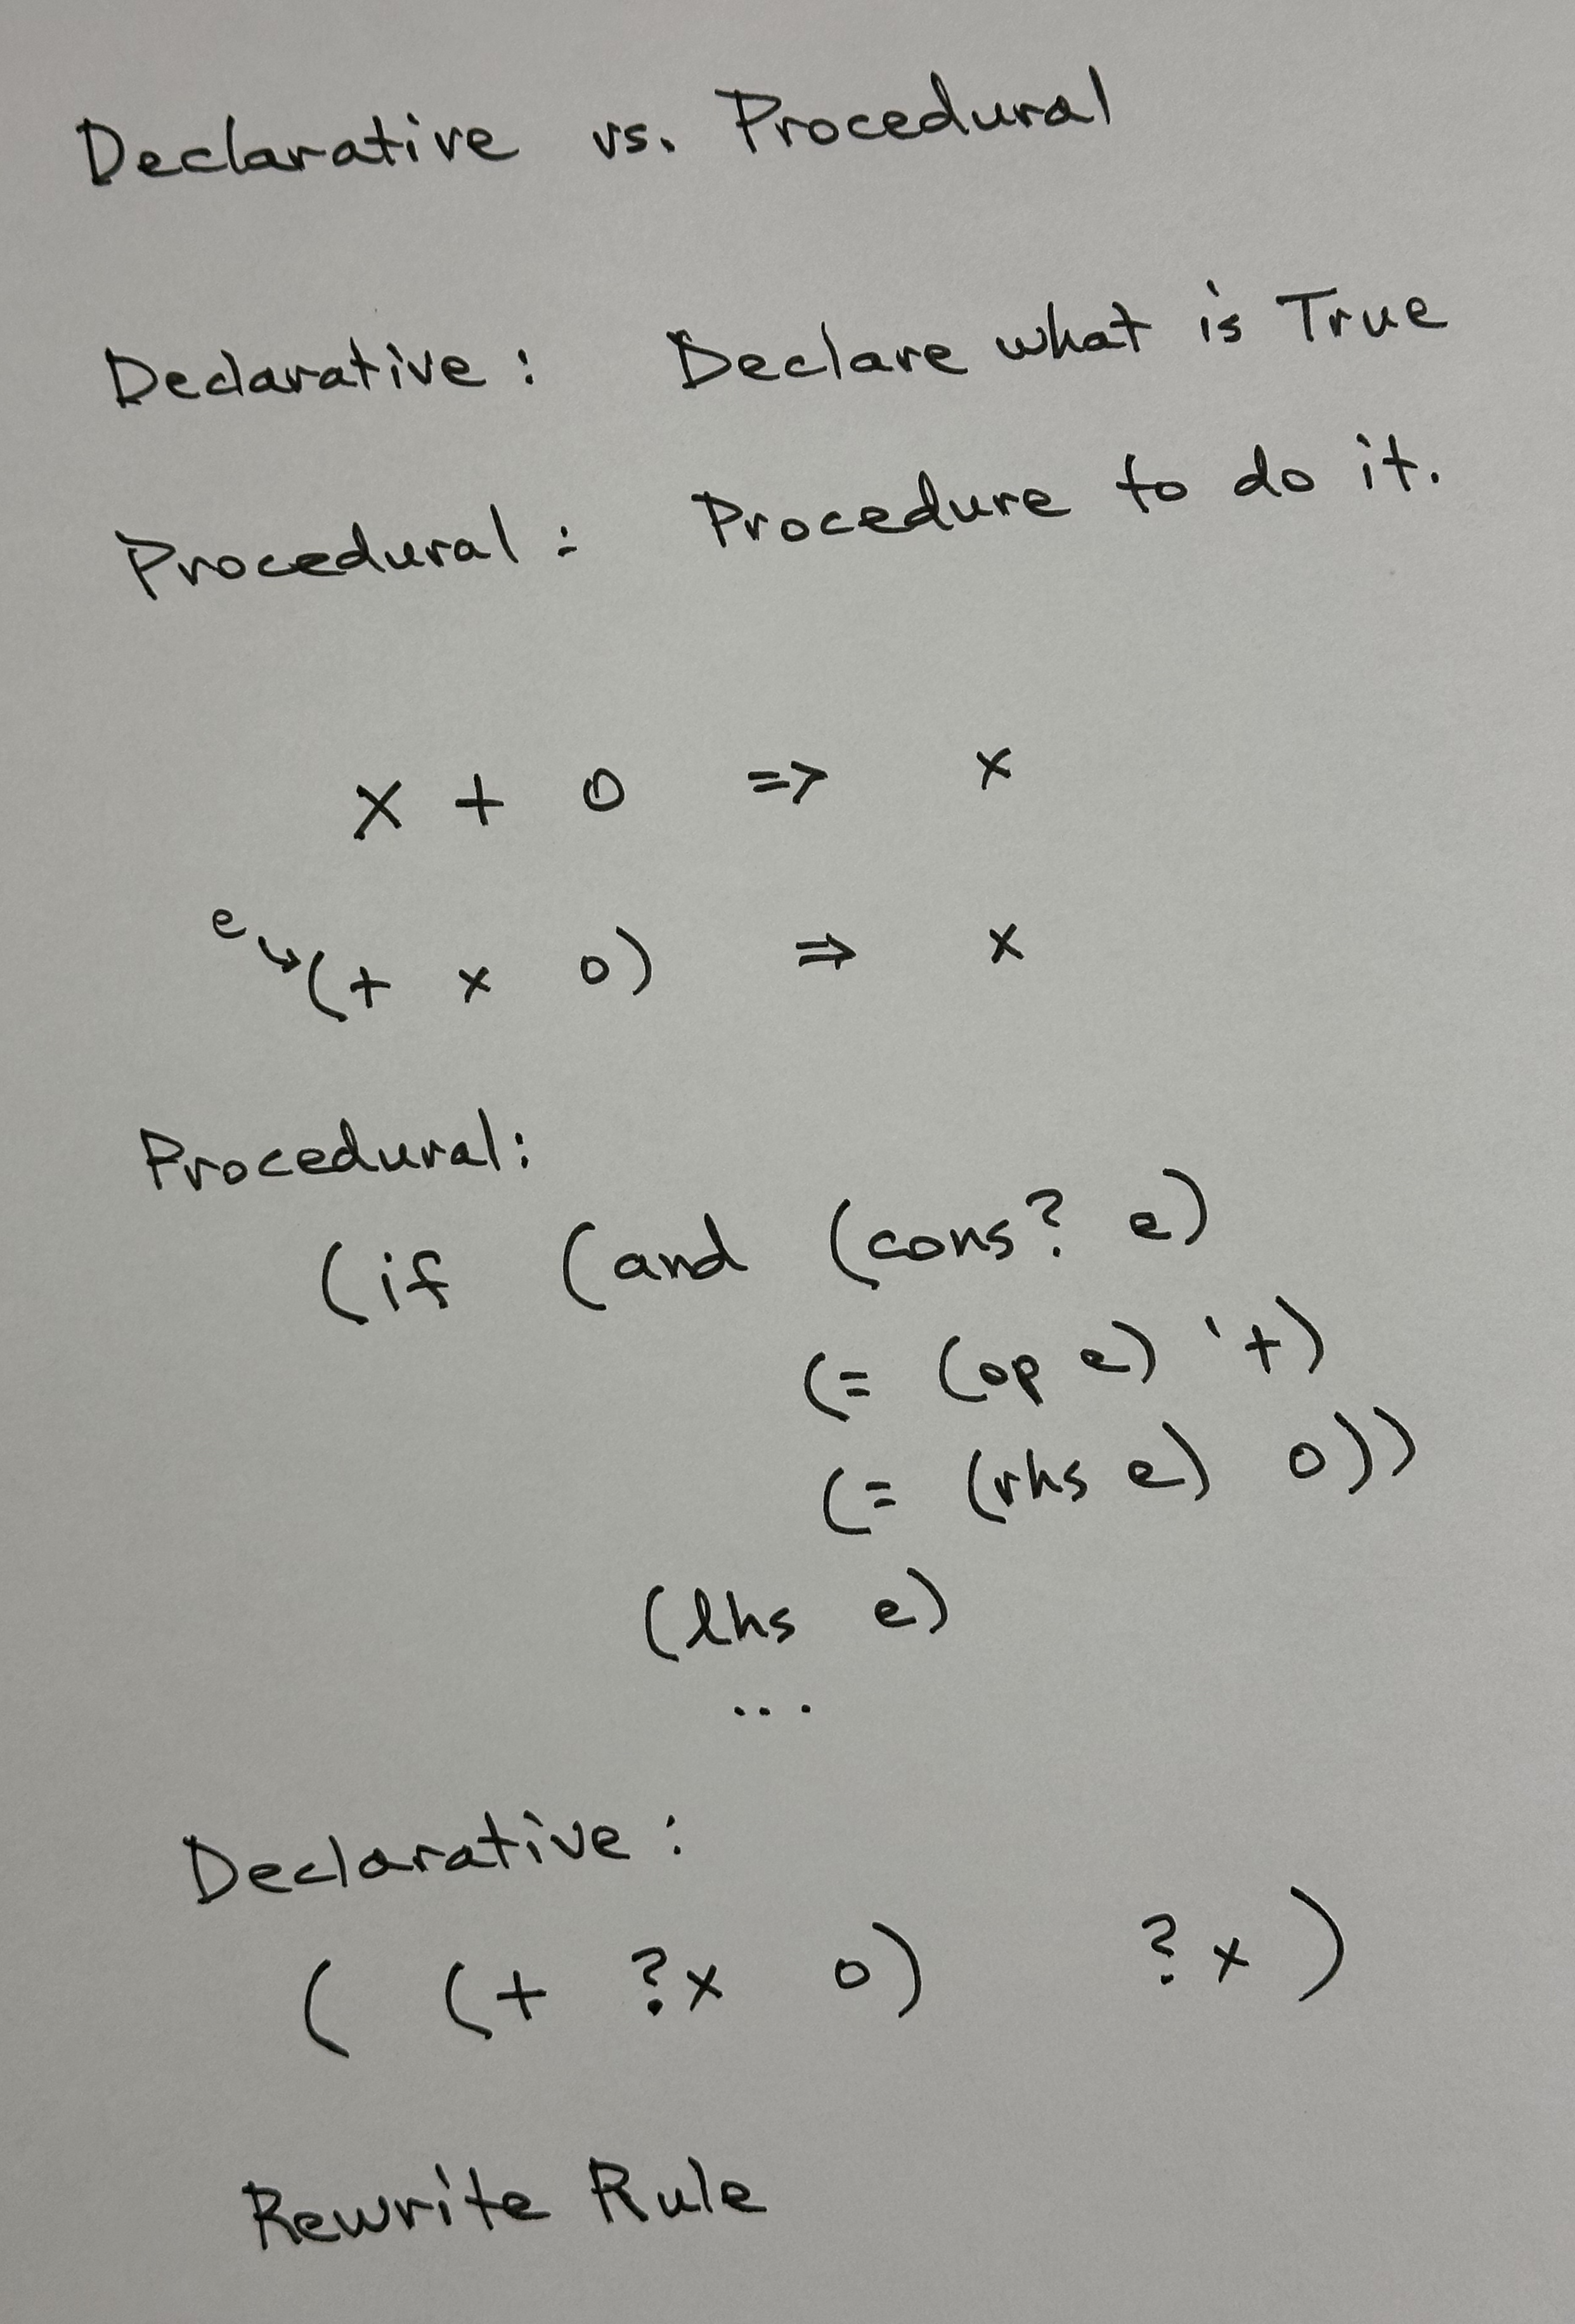 Declarative vs. Procedural
Declarative: Declare what is True
Procedural: Procedure to do it.
x + 0 => x
e↘(+ x 0) ⇒ x
Procedural:
(if (and (cons? e)
(= (op e) '+)
(= (rhs e) 0))
(lhs e)
...
Declarative:
( (+ ?x 0) ?x )
Rewrite Rule